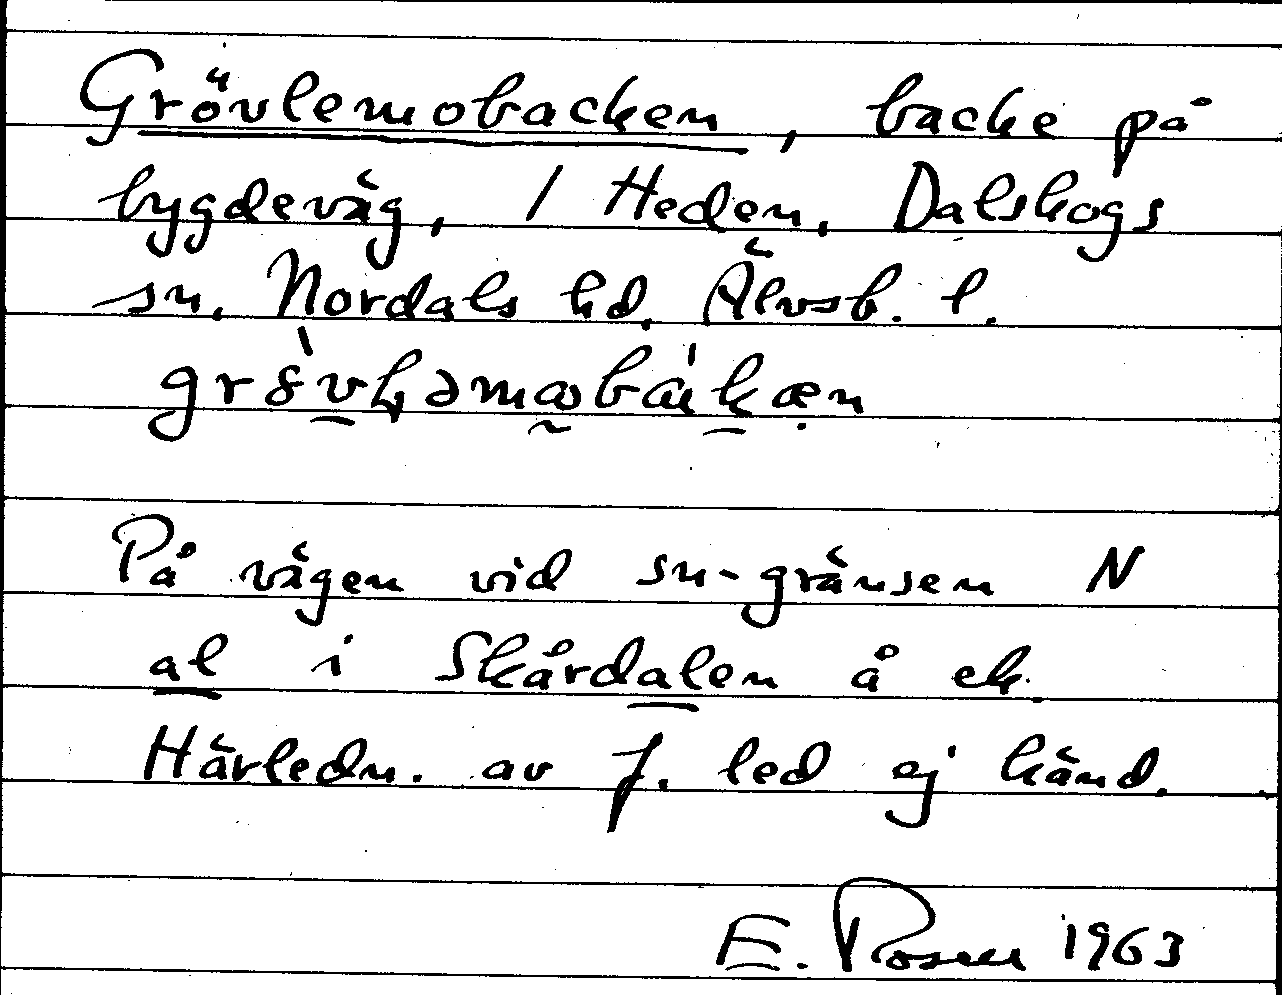 Grövlemobacken, backe på
bygdeväg, / Heden, Dalskogs
sn. Nordals hd. Älvsb. l.
På vägen vid sn-gränsen N
al i Skårdalen å ek.
Härledn. av f. led ej känd.
E. Rosell 1963